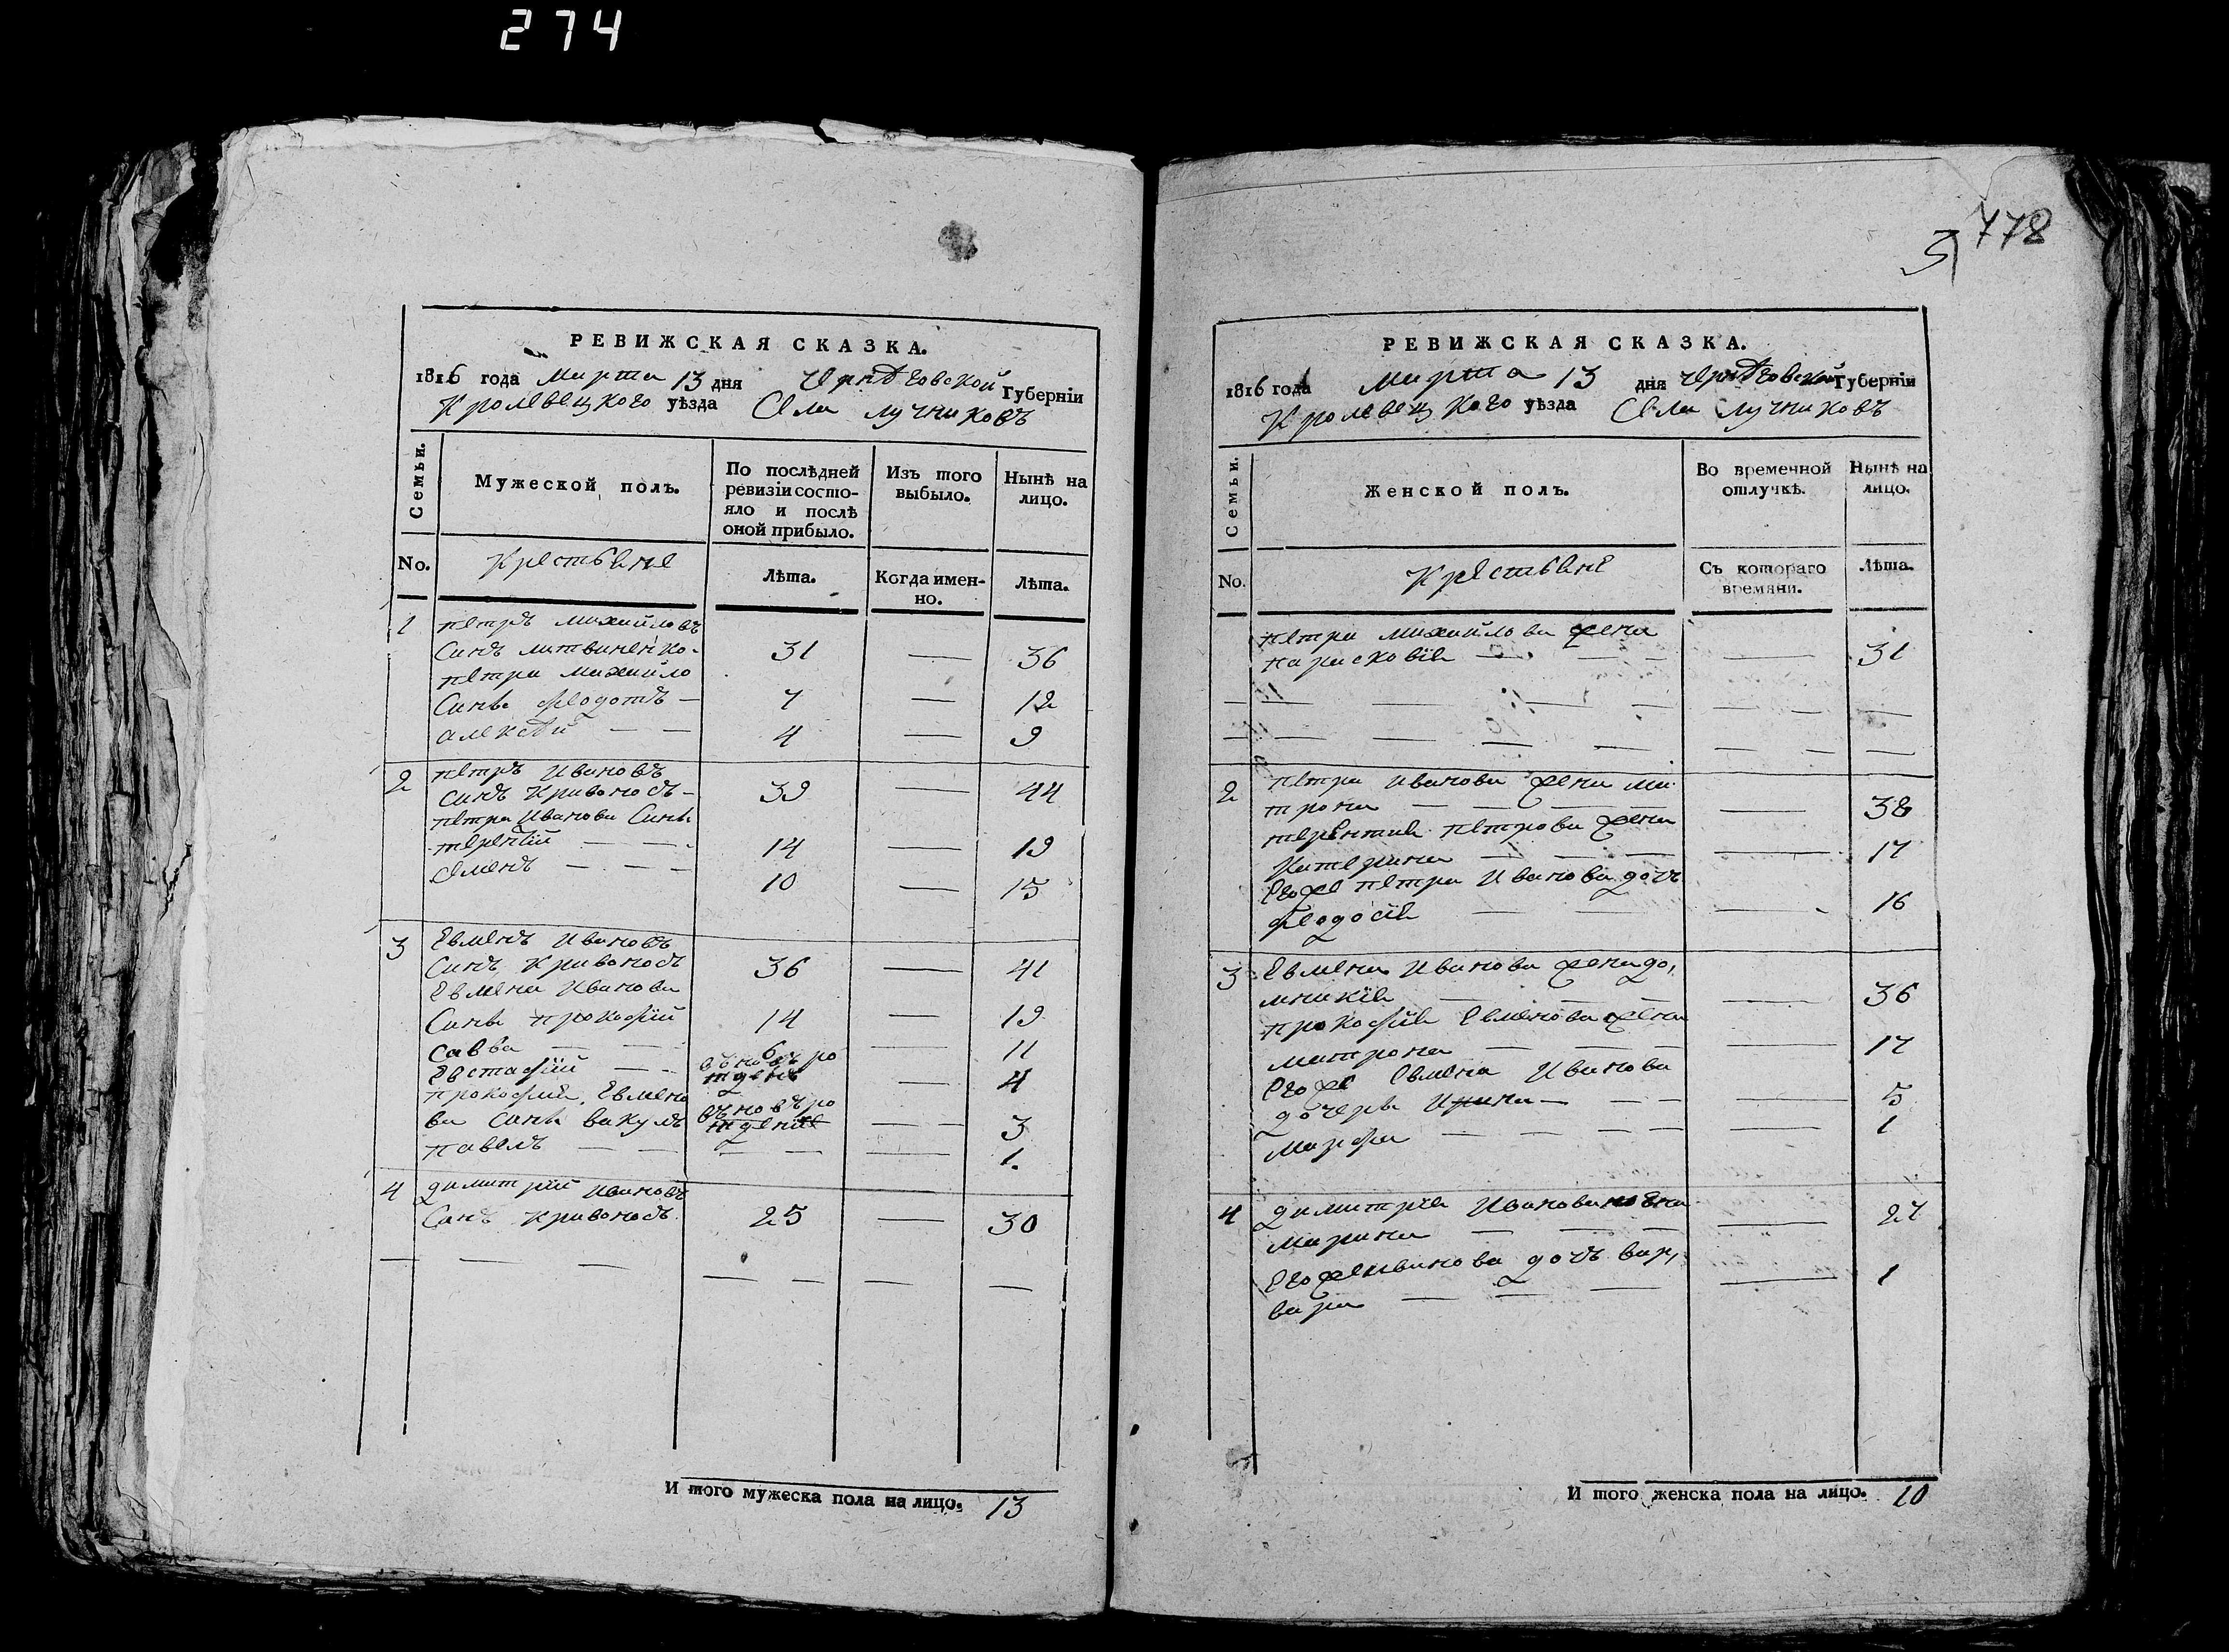 274
РЕВИЖСКАЯ СКАЗКА.
1816 года Марта 13 дня Чернѣговской Губерніи
Кролевецкого уѣзда Села Лучниковъ
Семьи.
Мужеской полъ.
По послѣдней ревизіи состо-
яло и послѣ
оной прибыло.
Изъ того
выбыло.
Нынѣ на
лицо.
No.
Крестьяне
Лѣта.
Когда имен-
но.
Лѣта.
1 петръ михайловъ
Синъ литвиненко 31 — 36
петра михайло
Синъ Феодотъ — 7 — 12
алексѣй — — 4 — 9
2 петръ Ивановъ
Синъ Кривоносъ — 39 — 44
петра Иванова Синъ
терентій — — 14 — 19
Семенъ — — 10 — 15
3 Евменъ Ивановъ
Синъ Кривоносъ 36 — 41
Евмена Иванова
Синъ прокофій 14 — 19
Савва — — 6 — 11
Евстафій — — въновъ ро
жденъ — 4
прокофія Евмено
ва Синъ вакулъ въновъ ро
жденіе — — 3
павелъ — — — — — 1.
4 Димитрій Ивановъ
Синъ Кривоносъ 25 — 30
И того мужеска пола на лицо. 13
778
РЕВИЖСКАЯ СКАЗКА.
1816 года Марта 13 дня Чернѣговской Губерніи
Кролевецкого уѣзда Села Лучниковъ
Семьи.
Женской полъ.
Во времечной
отлучкѣ.
Нынѣ на
лицо.
No.
Крестьяне
Съ котораго
времяни.
Лѣта.
петра михайлова жена
парасковія — — — — 31
2 петра Иванова жена ма
трона — — — — — 38
терентия петрова жена
Катерина — — — — 17
Егоже петра Иванова дочь
Феодосія — — — 16
3 Евмена Иванова жена до,
мникія — — — — 36
прокофия Евменова жена
матрона — — — — 17
Егоже Евмена Иванова
дочерь Ирина — — — — 5
марфа — — — — 1
4 Димитрия Иванова жена
марина — — — — 27
Егоже Иванова дочь вар,
вара — — — — 1
И того женска пола на лицо. 10